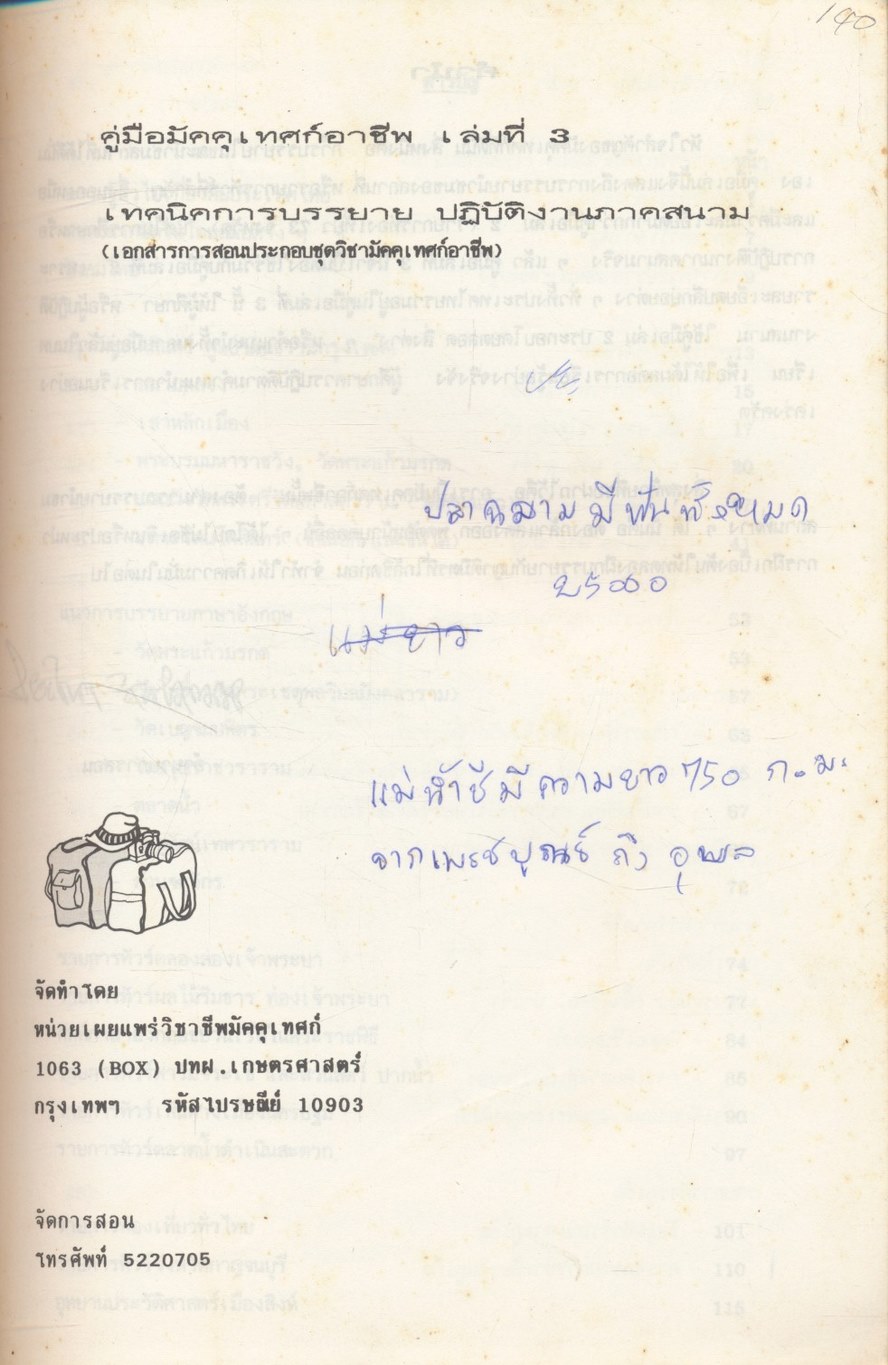 140
คู่มือมัคคุเทศก์อาชีพ เล่มที่ 3
เทคนิคการบรรยาย ปฏิบัติงานภาคสนาม
(เอกสารการสอนประกอบชุดวิชามัคคุเทศก์อาชีพ)
ปลาฉลามมีฟันทั้งหมด
2500
แม่ยาว
แม่น้ำชีมีความยาว 750 ก.ม.
จากเพรชบูรณ์ ถึง อุบล
จัดทำโดย
หน่วยเผยแพร่วิชาชีพมัคคุเทศก์
1063 (BOX) ปทฝ.เกษตรศาสตร์
กรุงเทพฯ รหัสไปรษณีย์ 10903
จัดการสอน
โทรศัพท์ 5220705